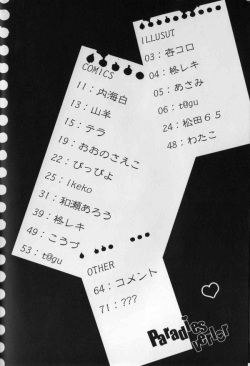 ILLUSUT
03：杏コロ
04：柊レキ
05：あさみ
06：t@gu
24：松田65
48：わたこ
COMICS
11：内海白
13：山羊
15：テラ
19：おおのさえこ
22：ぴっぴよ
25：Ikeko
31：和瀬あろう
39：柊レキ
49：こうづ
53：t@gu
OTHER
64：コメント
71：???